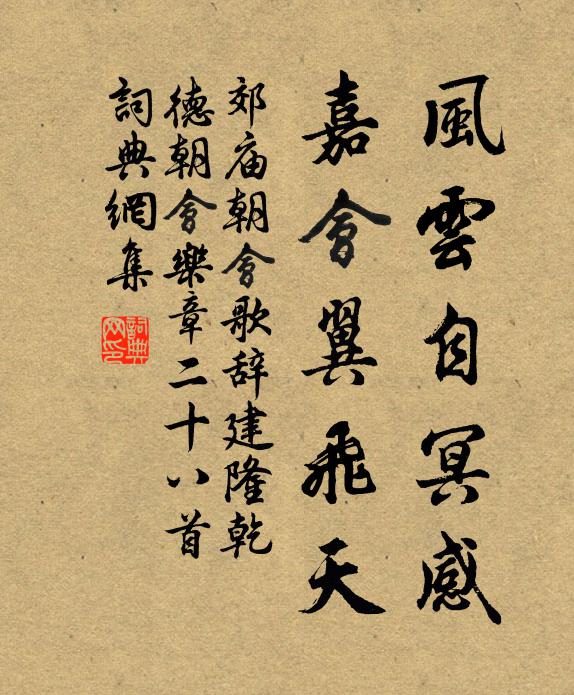 風雲自冥感
嘉會翼飛天
郊庙朝會歌辞建隆乾
德朝會樂章二十八首
詞典網集
詞典
网印